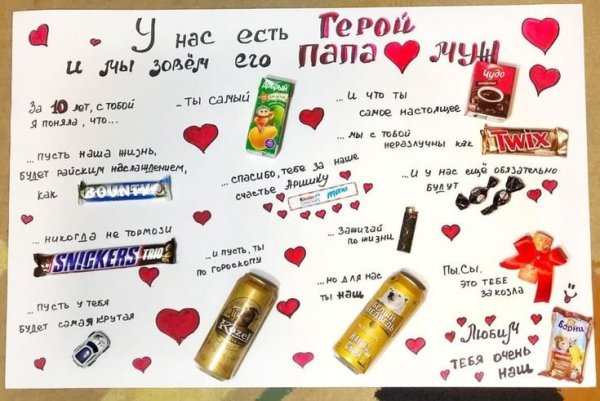 У нас есть Герой
и мы зовём его папа муж
За 10 лет, с тобой
я поняла, что...
...ты самый
Добрый
...и что ты
самое настоящее
Чудо
...мы с тобой
неразлучны как
Twix
...пусть наша жизнь,
будет райским наслаждением,
как
BOUNTY
...спасибо, тебе за наше
счастье Аришку
Kinder
maxi
...и у нас ещё обязательно
будут
...никогда не тормози
SNICKERS TRIO
...и пусть, ты
по гороскопу
Kozel
...Зажигай
по жизни
...но для нас
ты наш
Пы.Сы.
это тебе
за козла
...Пусть у тебя
будет самая крутая
Любим
тебя очень
наш
Барни